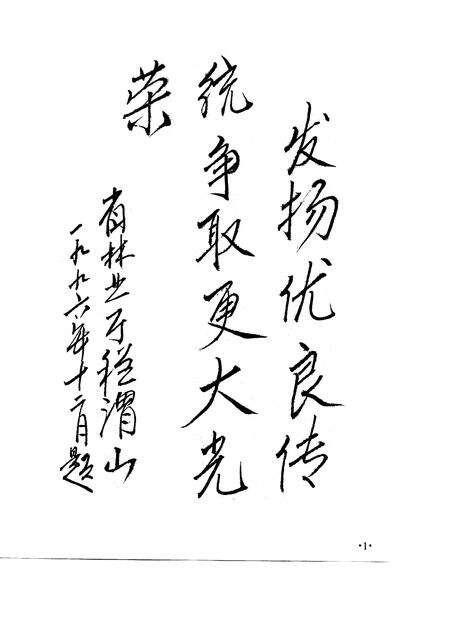 发扬优良传
统争取更大光
荣
省林业厅程渭山
一九九六年十二月题
·1·